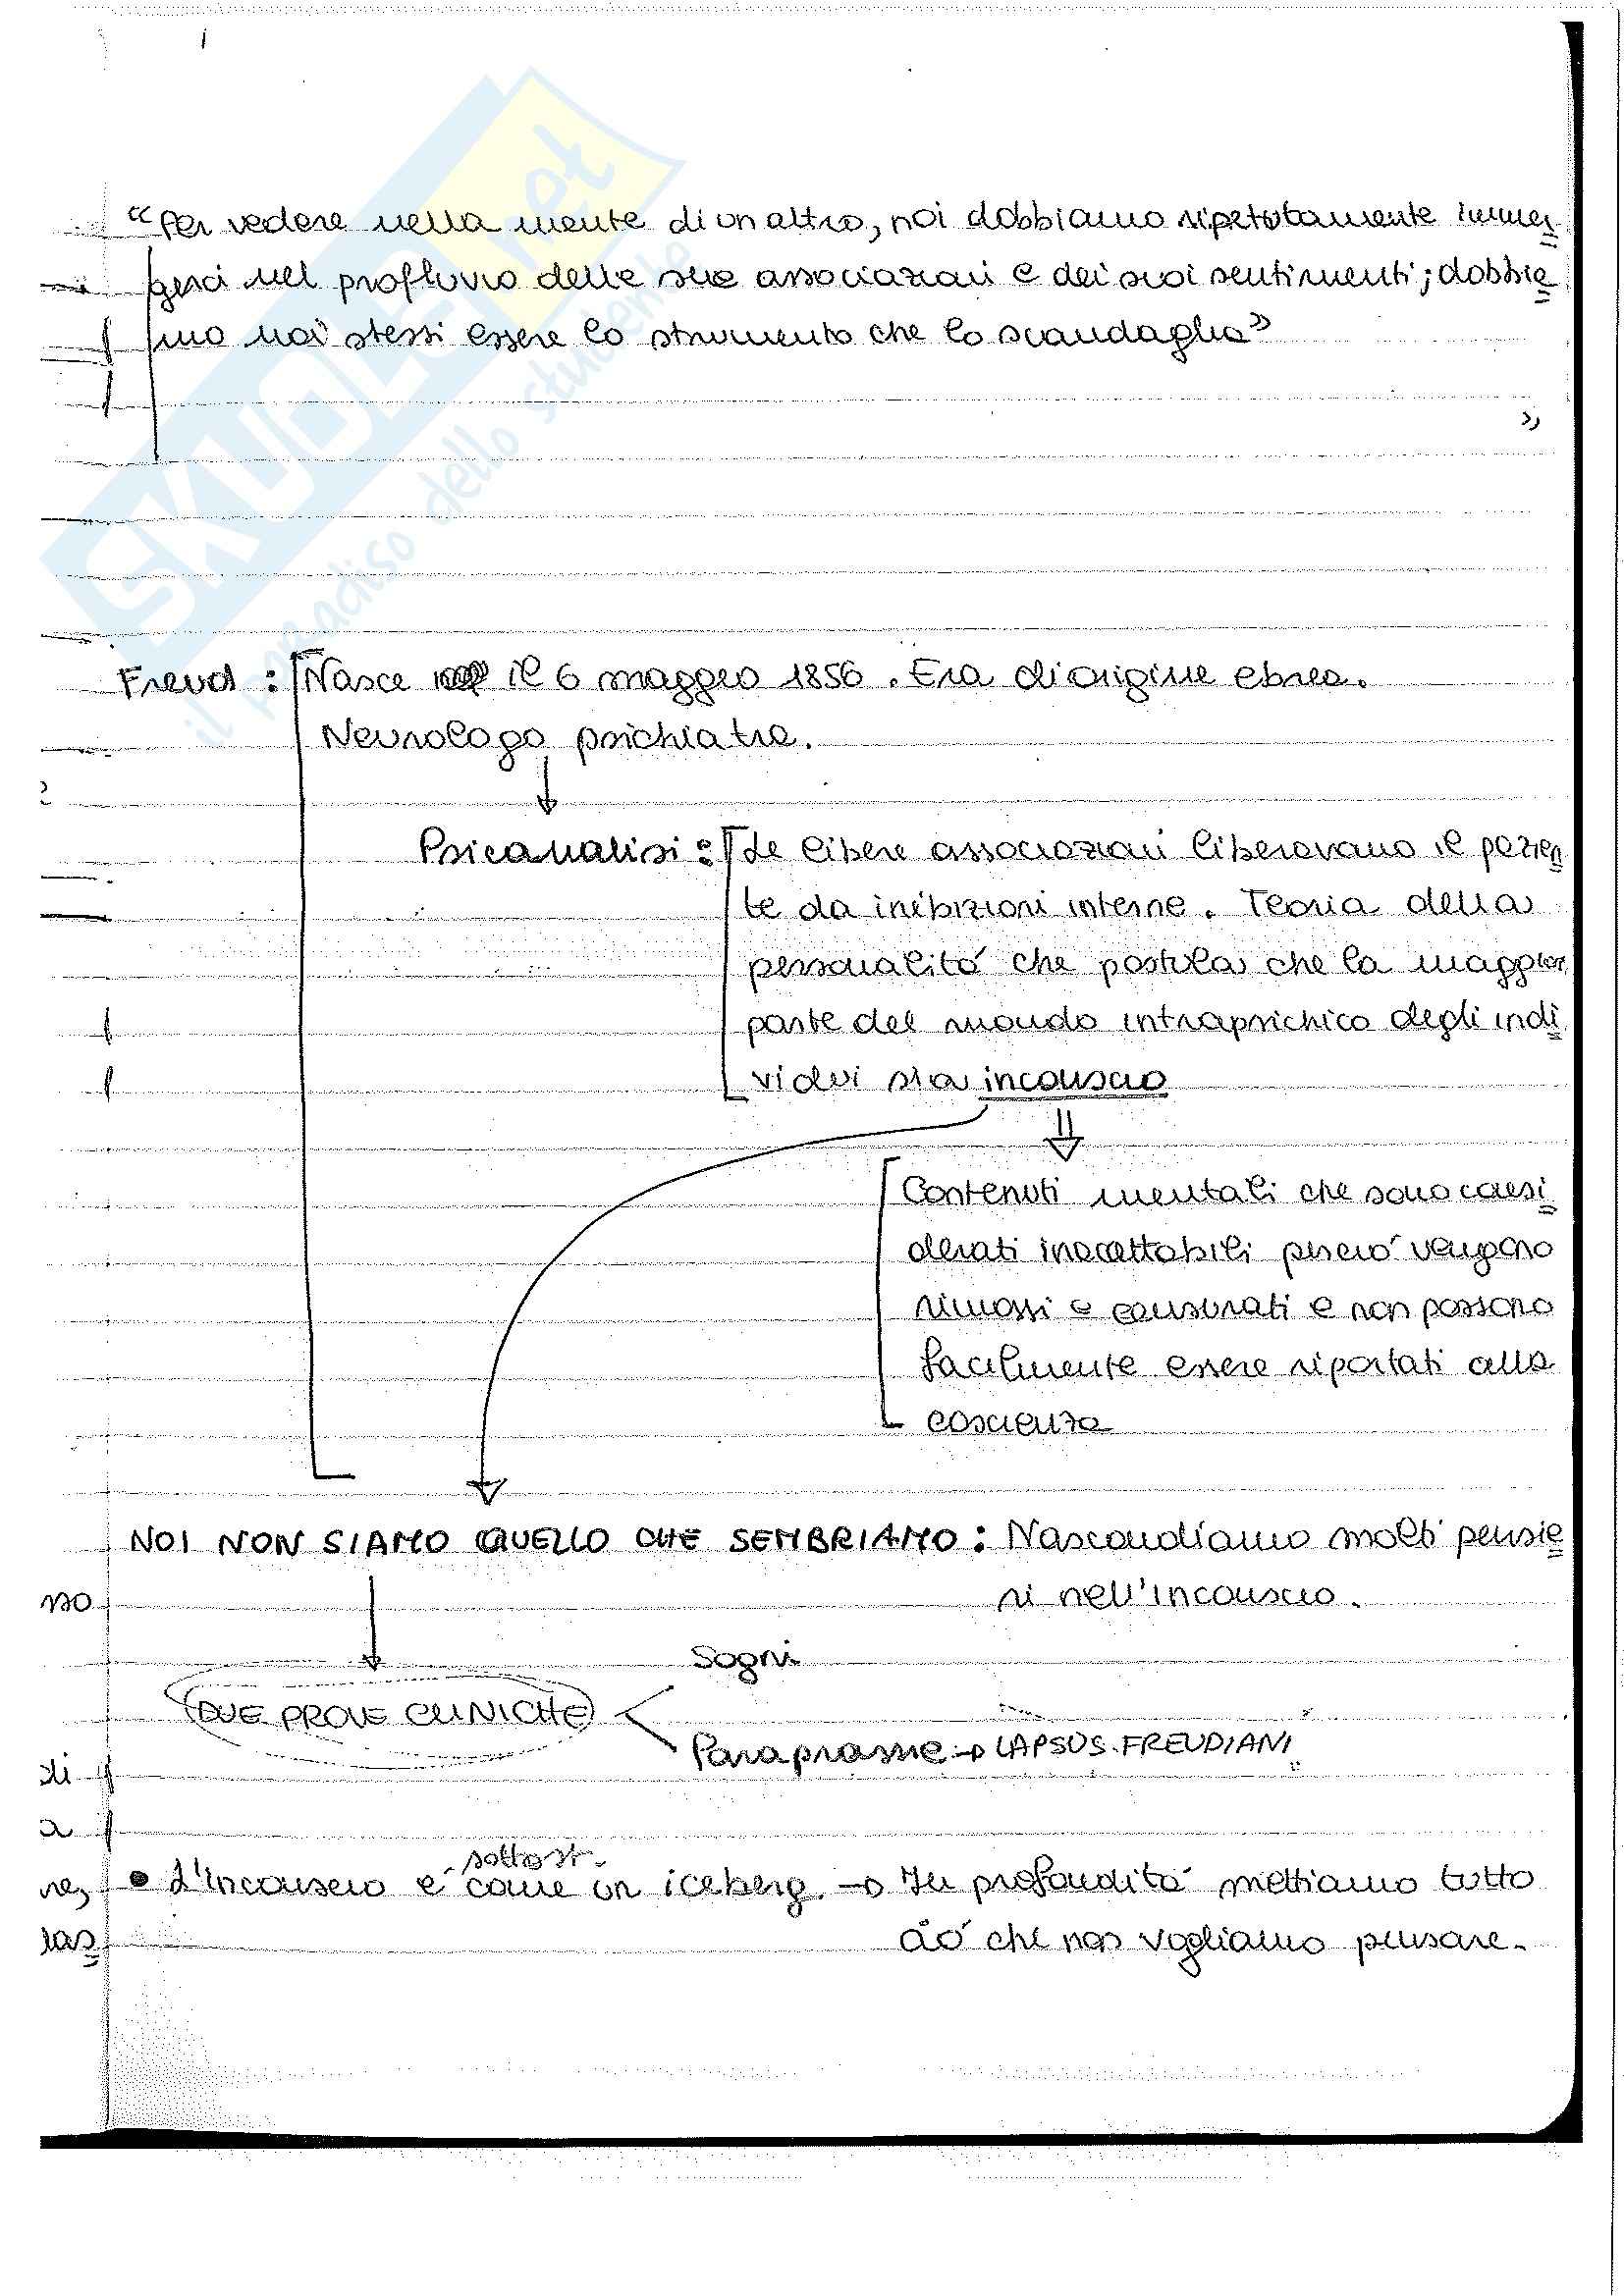 "Per vedere nella mente di un altro, noi dobbiamo ripetutamente immer
gerci nel profluvio delle sue associazioni e dei suoi sentimenti; dobbia
mo noi stessi essere lo strumento che lo scandaglia"
"
Freud : Nasce il 6 maggio 1856. Era di origine ebrea.
Neurologo psichiatra.
Psicanalisi: Le libere associazioni liberavano il pazien
te da inibizioni interne. Teoria della
personalità che postula che la maggior
parte del mondo intrapsichico degli indi
vidui sia inconscio
Contenuti mentali che sono consi
derati inaccettabili perciò vengono
rimossi e censurati e non possono
facilmente essere riportati alla
coscienza
NOI NON SIAMO QUELLO CHE SEMBRIAMO: Nascondiamo molti pensie
no
ri nell'inconscio.
Sogni
DUE PROVE CLINICHE
Paraprassie → LAPSUS FREUDIANI
di
a
sottostr.
ne,
• L'inconscio è come un iceberg. → In profondità mettiamo tutto
las
ciò che non vogliamo pensare.
SKUOLA.net
il paradiso dello studente